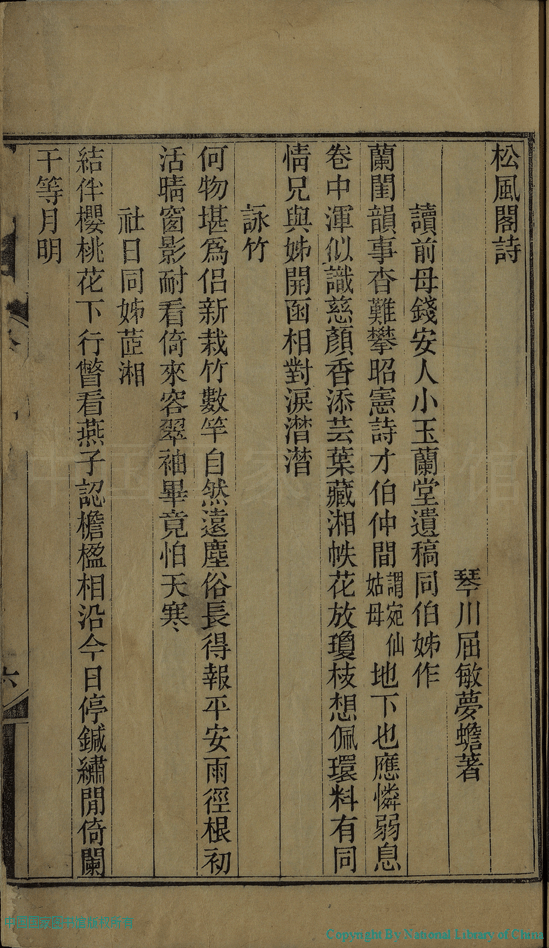 松風閣詩
琴川屈敏夢蟾著
讀前母錢安人小玉蘭堂遺稿同伯姊作
蘭閨韻事杳難攀昭憲詩才伯仲間謂宛仙姑母地下也應憐弱息
卷中渾似識慈顏香添芸葉藏湘帙花放瓊枝想佩環料有同
情兄與姊開函相對淚潸潸
詠竹
何物堪爲侶新栽竹數竿自然遠塵俗長得報平安雨徑根初
活晴窗影耐看倚來容翠袖畢竟怕天寒
社日同姊茝湘
結伴櫻桃花下行瞥看燕子認檐楹相沿今日停鍼繡閒倚闌
干等月明
六
Copyright By National Library of China